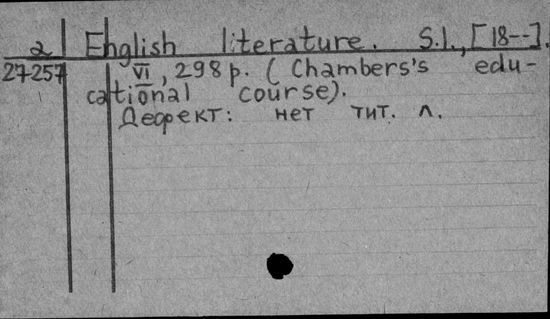 2 English literature. S.l., [18--].
27257 VI, 298 p. (Chambers's edu-
cational course).
Дефект: нет тит. л.